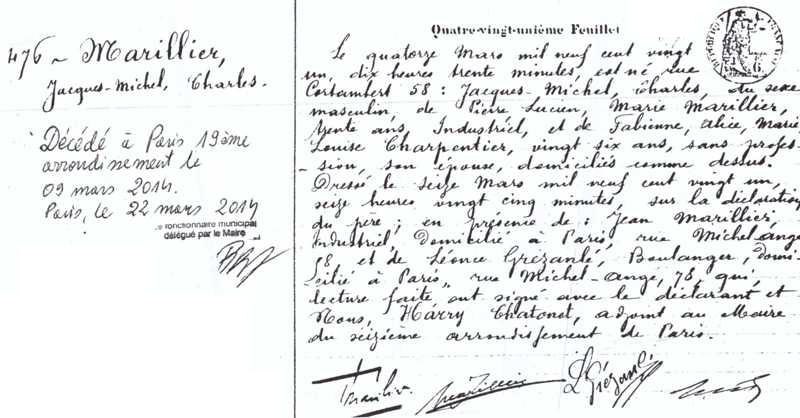 476 ~ Marillier,
Jacques-Michel, Charles.
Décédé à Paris 19ème
arrondissement le
09 mars 2014.
Paris, le 22 mars 2014
Le fonctionnaire municipal
délégué par le Maire
Quatre-vingt-unième Feuillet
Le quatorze Mars mil neuf cent vingt
un, dix heures trente minutes, est né rue
Cortambert 58 : Jacques-Michel, Charles, du sexe
masculin, de Pierre Lucien, Marie Marillier,
trente ans, Industriel, et de Fabienne, Alice, Marie
Louise Charpentier, vingt six ans, sans profes-
-sion, son épouse, domiciliés comme dessus.
Dressé le seize Mars mil neuf cent vingt un,
seize heures vingt cinq minutes, sur la déclaration
du père ; en présence de : Jean Marillier,
Industriel, Domicilié à Paris, rue Michel ange
et de Léonce Grézanlé, Boulanger, Domi-
cilié à Paris, rue Michel-ange, 78, qui,
lecture faite ont signé avec le déclarant et
Nous, Harry Chatonet, adjoint au Maire
du seizième arrondissement de Paris.
L Grézanlé